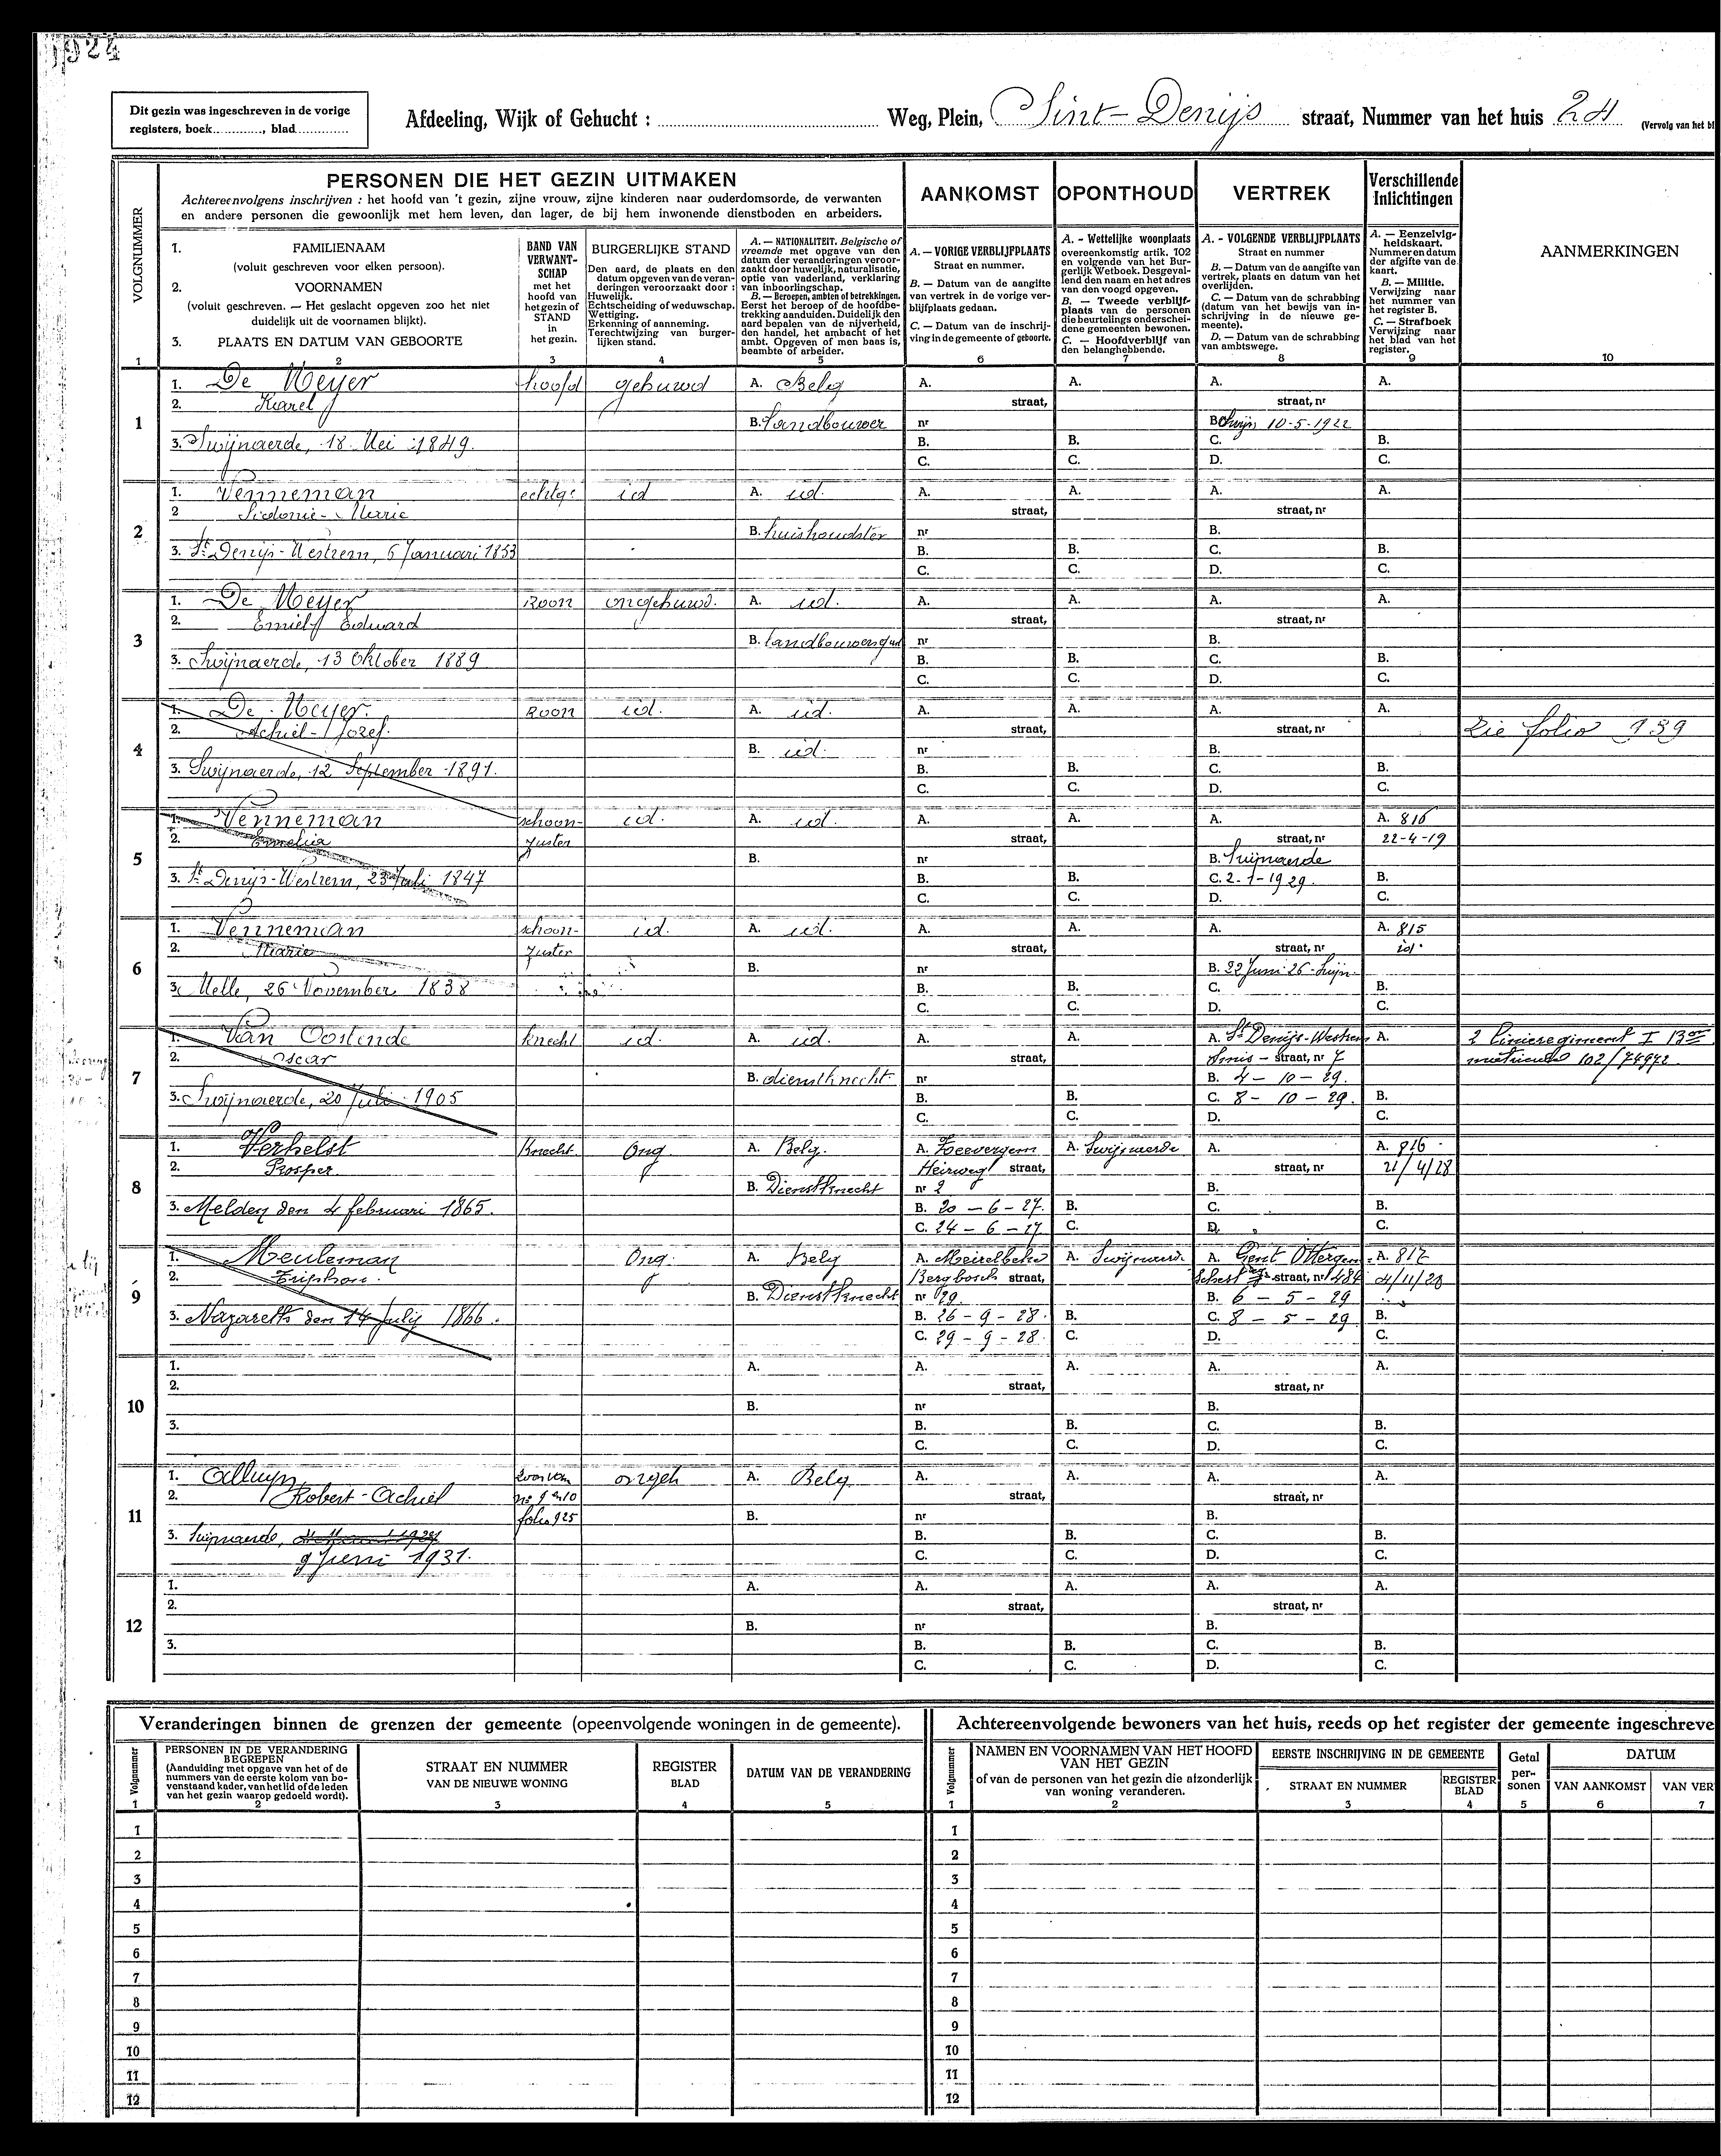 1924
Dit gezin was ingeschreven in de vorige
registers, boek............, blad............
Afdeeling, Wijk of Gehucht : Weg, Plein, Sint-Denijs straat, Nummer van het huis 24 (Vervolg van het bl
VOLGNUMMER
PERSONEN DIE HET GEZIN UITMAKEN
Achtereenvolgens inschrijven : het hoofd van 't gezin, zijne vrouw, zijne kinderen naar ouderdomsorde, de verwanten
en andere personen die gewoonlijk met hem leven, dan lager, de bij hem inwonende dienstboden en arbeiders.
AANKOMST
OPONTHOUD
VERTREK
Verschillende
Inlichtingen
AANMERKINGEN
1. FAMILIENAAM
(voluit geschreven voor elken persoon).
2. VOORNAMEN
(voluit geschreven. — Het geslacht opgeven zoo het niet
duidelijk uit de voornamen blijkt).
3. PLAATS EN DATUM VAN GEBOORTE
BAND VAN
VERWANT-
SCHAP
met het
hoofd van
het gezin of
STAND
in
het gezin.
BURGERLIJKE STAND
Den aard, de plaats en den
datum opgeven van de veran-
deringen veroorzaakt door :
Huwelijk.
Echtscheiding of weduwschap.
Wettiging.
Erkenning of aanneming.
Terechtwijzing van burger-
lijken stand.
A. — NATIONALITEIT. Belgische of
vreemde met opgave van den
datum der veranderingen veroor-
zaakt door huwelijk, naturalisatie,
optie van vaderland, verklaring
van inboorlingschap.
B. — Beroepen, ambten of betrekkingen.
Eerst het beroep of de hoofdbe-
trekking aanduiden. Duidelijk den
aard bepalen van de nijverheid,
den handel, het ambacht of het
ambt. Opgeven of men baas is,
beambte of arbeider.
A. — VORIGE VERBLIJFPLAATS
Straat en nummer.
B. — Datum van de aangifte
van vertrek in de vorige ver-
blijfplaats gedaan.
C. — Datum van de inschrij-
ving in de gemeente of geboorte.
A. - Wettelijke woonplaats
overeenkomstig artik. 102
en volgende van het Bur-
gerlijk Wetboek. Desgeval-
lend den naam en het adres
van den voogd opgeven.
B. — Tweede verblijf-
plaats van de personen
die beurtelings onderschei-
dene gemeenten bewonen.
C. — Hoofdverblijf van
den belanghebbende.
A. - VOLGENDE VERBLIJFPLAATS
Straat en nummer
B. — Datum van de aangifte van
vertrek, plaats en datum van het
overlijden.
C. — Datum van de schrabbing
(datum van het bewijs van in-
schrijving in de nieuwe ge-
meente).
D. — Datum van de schrabbing
van ambtswege.
A. — Eenzelvig-
heidskaart.
Nummer en datum
der afgifte van de
kaart.
B. — Militie.
Verwijzing naar
het nummer van
het register B.
C. — Strafboek
Verwijzing naar
het blad van het
register.
1 2 3 4 5 6 7 8 9 10
1
1. De Meyer hoofd gehuwd A. Belg A. A. A. A.
2. Karel straat, straat, nr
B. Landbouwer nr B. Swijn 10-5-1922
3. Swijnaerde, 18 Mei 1849. B. B. C. B.
C. C. D. C.
2
1. Venneman echtg: id A. id. A. A. A. A.
2 Sidonie-Marie straat, straat, nr
B. huishoudster nr B.
3. St Denijs-Westrem, 6 Januari 1853 B. B. C. B.
C. C. D. C.
3
1. De Meyer zoon ongehuwd. A. id. A. A. A. A.
2. Emiel Edward straat, straat, nr
B. nr B.
3. Swijnaerde, 13 Oktober 1889 B. B. C. B.
C. C. D. C.
4
1. De Meyer. zoon id. A. id. A. A. A. A.
2. Achiel-Jozef. straat, straat, nr Zie folio 139
B. id. nr B.
3. Swijnaerde, 12 September 1891. B. B. C. B.
C. C. D. C.
5
1. Venneman schoon- id. A. id. A. A. A. A. 816
2. Emelia zuster straat, straat, nr 22-4-19
B. nr B. Swijnaerde
3. St Denijs-Westrem, 23 Juli 1847 B. B. C. 2-1-1929. B.
C. C. D. C.
6
1. Venneman schoon- id. A. id. A. A. A. A. 815
2. Marie zuster straat, straat, nr id.
B. nr B. 22 Juni 26-Swijn.
3. Melle, 26 November 1838 B. B. C. B.
C. C. D. C.
7
1. Van Oostende knecht id. A. id. A. A. A. St Denijs-Westrem A. 2 Linieregiment I
2. Oscar straat, straat, nr 7 102/74972
B. dienstknecht nr B. 4-10-29.
3. Swijnaerde, 20 Juli 1905 B. B. C. 8-10-29. B.
C. C. D. C.
8
1. Verhelst Knecht Ong A. Belg. A. Zeevergem A. Swijnaerde A. A. 816
2. Prosper Heirweg straat, straat, nr 21/4/28
B. Dienstknecht nr 2 B.
3. Melden den 4 februari 1865. B. 20-6-27. B. C. B.
C. 24-6-27 C. D. C.
9
1. Meuleman Ong. A. Belg A. Meirelbeke A. Swijnaerde A. Gent Ottergem A. 817
2. Triphon. Bergbosch straat, straat, nr 484
B. Dienstknecht nr 29. B. 6-5-29
3. Nazareth den 14 July 1866. B. 26-9-28. B. C. 8-5-29 B.
C. 29-9-28. C. D. C.
10
1. A. A. A. A. A.
2. straat, straat, nr
B. nr B.
3. B. B. C. B.
C. C. D. C.
11
1. Alluyn zoon van ongeh A. Belg A. A. A. A.
2. Robert-Achiel no 9 en 10 straat, straat, nr
folio 925 B. nr B.
3. Swijnaerde, B. B. C. B.
9 Juni 1931. C. C. D. C.
12
1. A. A. A. A. A.
2. straat, straat, nr
B. nr B.
3. B. B. C. B.
C. C. D. C.
Veranderingen binnen de grenzen der gemeente (opeenvolgende woningen in de gemeente).
Volgnummer
PERSONEN IN DE VERANDERING
BEGREPEN
(Aanduiding met opgave van het of de
nummers van de eerste kolom van bo-
venstaand kader, van het lid of de leden
van het gezin waarop gedoeld wordt).
STRAAT EN NUMMER
VAN DE NIEUWE WONING
REGISTER
BLAD
DATUM VAN DE VERANDERING
1 2 3 4 5
1
2
3
4
5
6
7
8
9
10
11
12
Achtereenvolgende bewoners van het huis, reeds op het register der gemeente ingeschreve
Volgnummer
NAMEN EN VOORNAMEN VAN HET HOOFD
VAN HET GEZIN
of van de personen van het gezin die afzonderlijk
van woning veranderen.
EERSTE INSCHRIJVING IN DE GEMEENTE
STRAAT EN NUMMER
REGISTER
BLAD
Getal
per-
sonen
DATUM
VAN AANKOMST
VAN VER
1 2 3 4 5 6 7
1
2
3
4
5
6
7
8
9
10
11
12